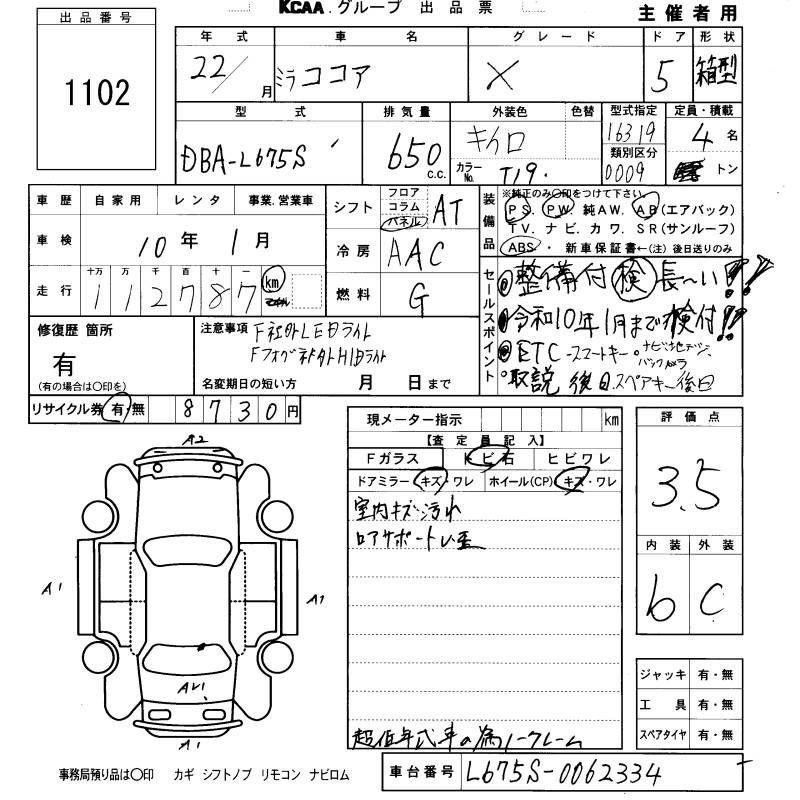 KCAA.グループ 出品票
主催者用
出品番号
1102
年式 車名 グレード ドア 形状
22/ 月 ミラココア X 5 箱型
型式 排気量 外装色 色替 型式指定 定員・積載
DBA-L675S 650 c.c. キイロ 16319 4名
カラーNo. T19. 類別区分 0009 トン
車歴 自家用 レンタ 事業.営業車
シフト フロア コラム パネル AT
車検 10年 1月
冷房 AAC
走行 十万 万 千 百 十 一
112787 km
燃料 G
装備品
※純正のみ○印をつけて下さい
PS. PW. 純AW. AB(エアバック)
TV. ナビ. カワ. SR(サンルーフ)
ABS・新車保証書←(注)後日送りのみ
セールスポイント
整備付 検 長〜い!!
令和10年1月まで検付!!
ETC・スマートキー・ナビ・地デジ・
バックカメラ
取説 後日.スペアキー後日
修復歴 箇所
有
(有の場合は○印を)
注意事項 F社外LEDライト
FフォグネHIDライト
名変期日の短い方 月 日まで
リサイクル券 有・無 8730円
現メーター指示 km
【査定員記入】
Fガラス トビ石 ヒビワレ
ドアミラー キズ・ワレ ホイール(CP) キズ・ワレ
室内キズ・汚れ
ロアサポート歪
超低年式車の為ノークレーム
評価点
3.5
内装 外装
b C
ジャッキ 有・無
工具 有・無
スペアタイヤ 有・無
A2
A1
A1
A1
事務局預り品は○印 カギ シフトノブ リモコン ナビロム
車台番号 L675S-0062334